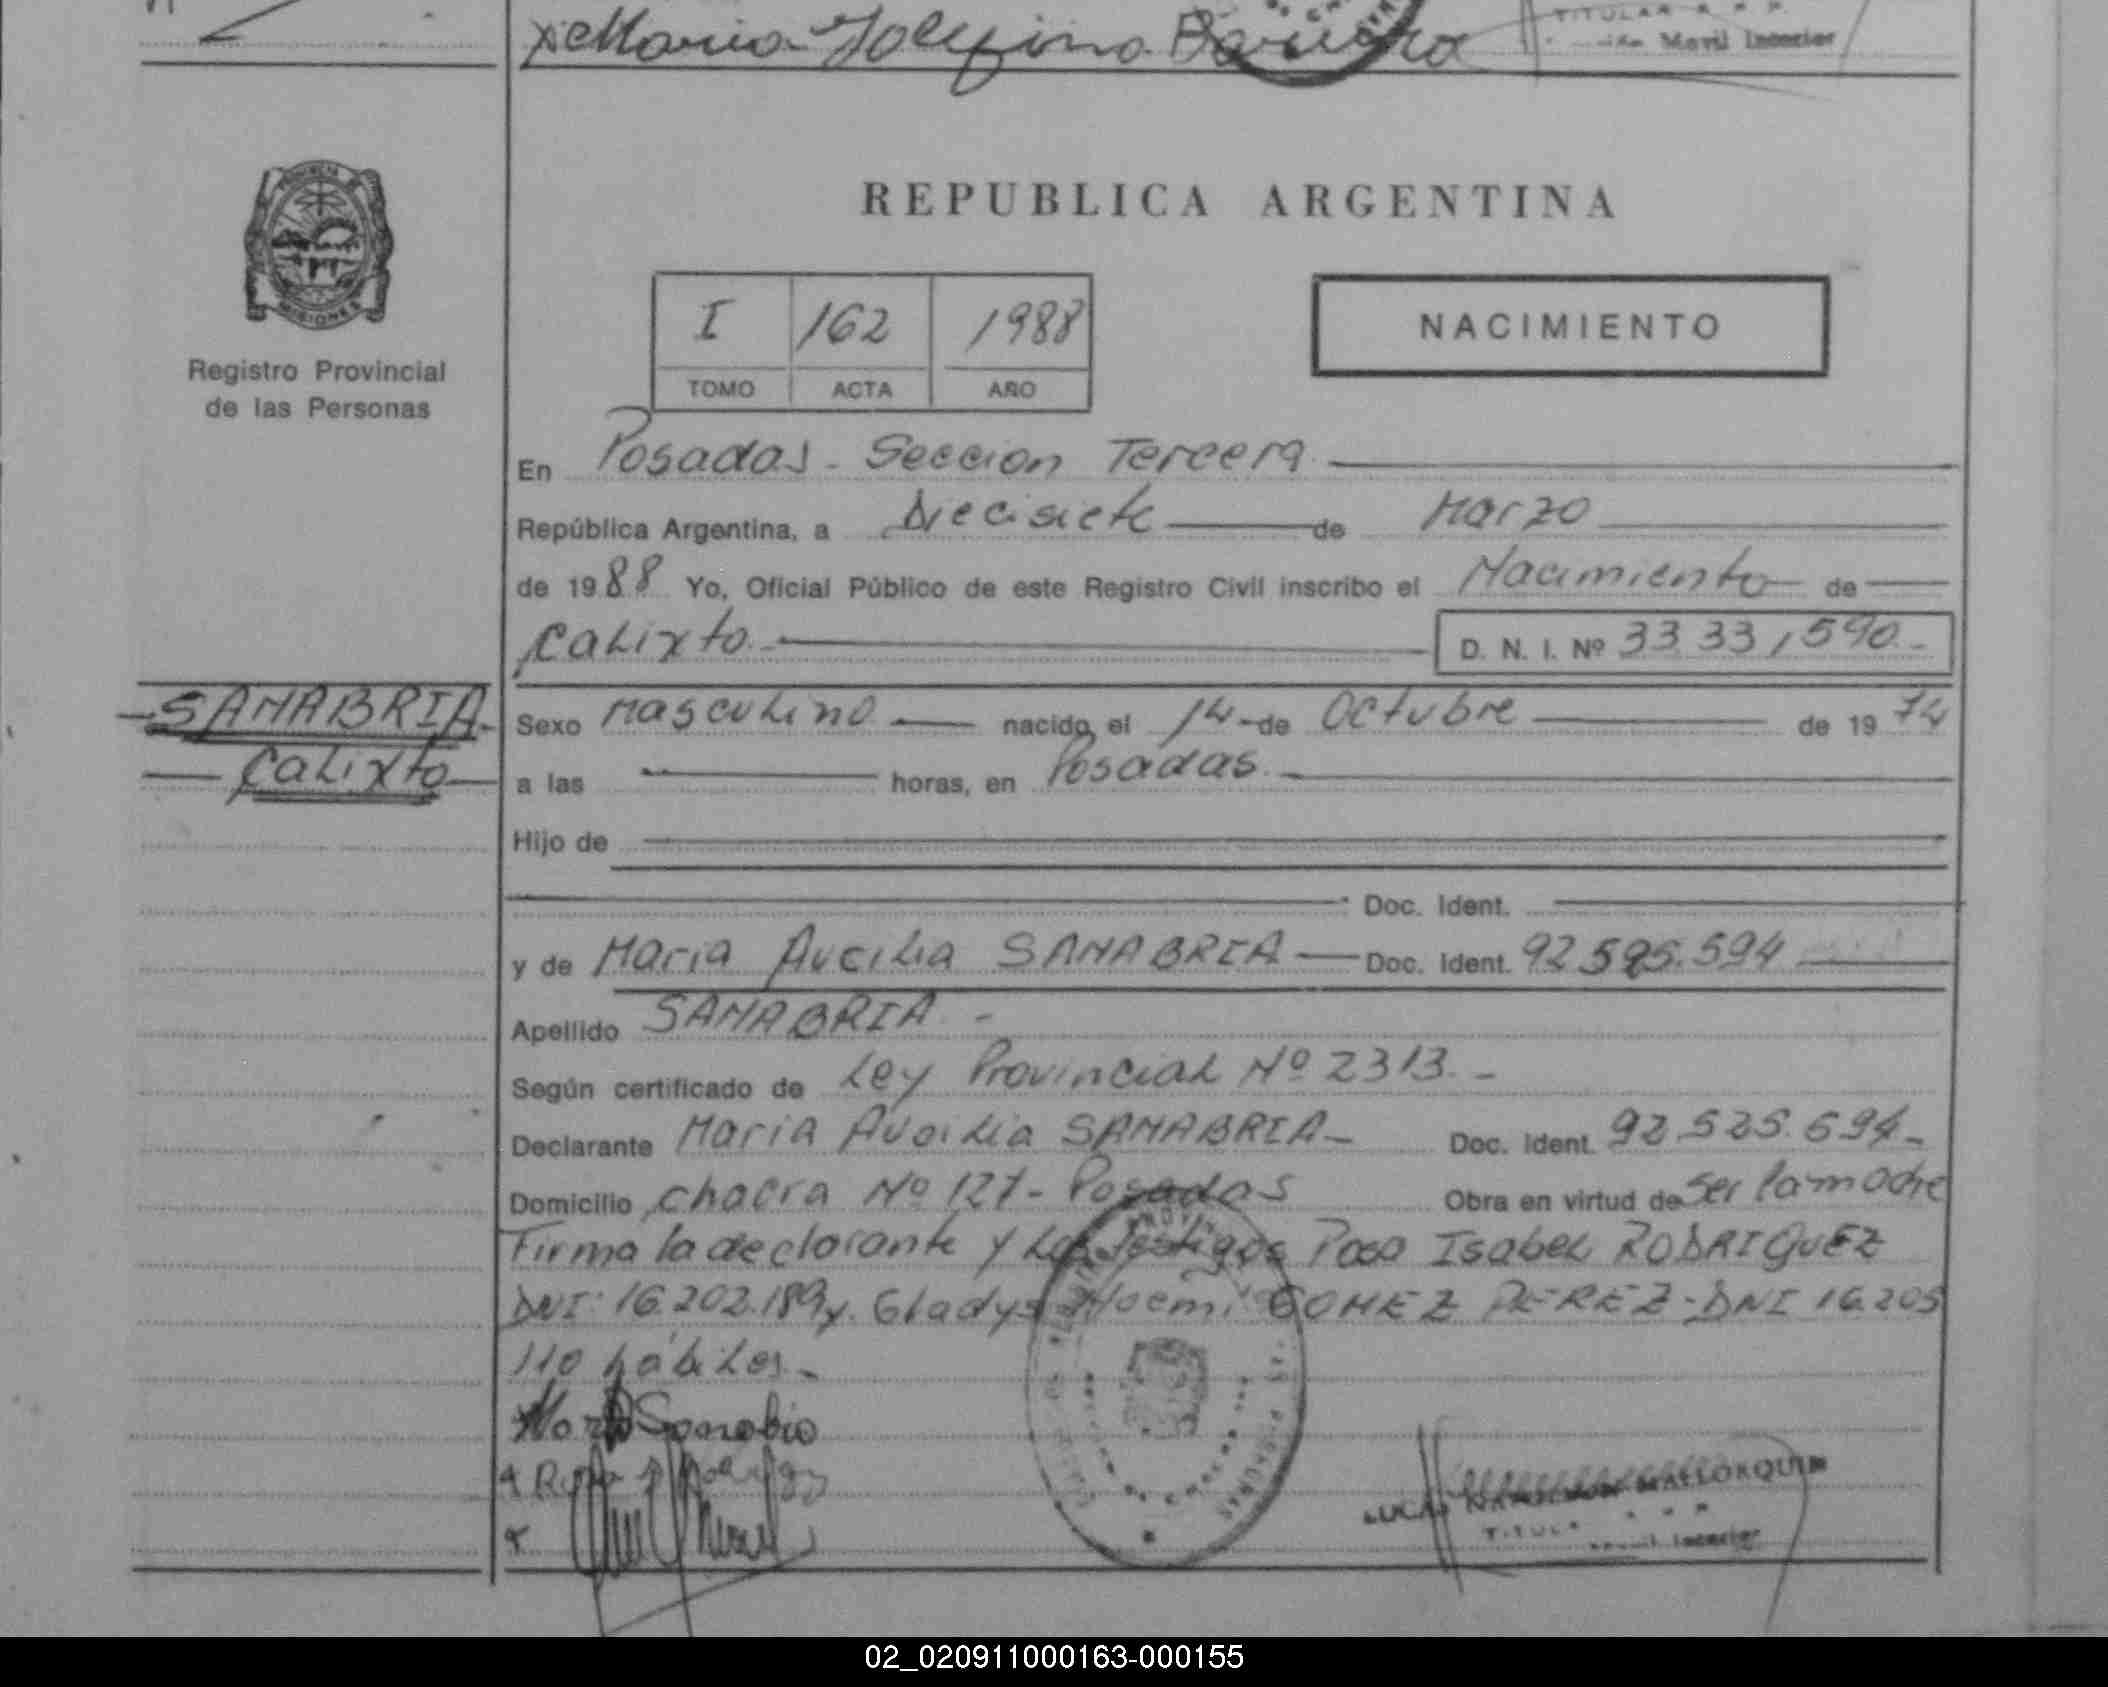 Maria Josefina
TITULAR
Movil Interior
PROVINCIA DE
MISIONES
Registro Provincial
de las Personas
REPUBLICA ARGENTINA
I 162 1988
TOMO ACTA AÑO
NACIMIENTO
En Posadas - Seccion Tercera
República Argentina, a Diecisiete de Marzo
de 1988 Yo, Oficial Público de este Registro Civil inscribo el Nacimiento de
Calixto. D. N. I. Nº 33 33, 590.-
-SANABRIA-
Calixto
Sexo Masculino nacido el 14 - de Octubre de 19 74
a las horas, en Posadas.
Hijo de
Doc. Ident.
y de Maria Aucilia SANABRIA Doc. Ident. 92 595.594
Apellido SANABRIA -
Según certificado de Ley Provincial Nº 2313.-
Declarante Maria Aucilia SANABRIA- Doc. Ident. 92.525.594-
Domicilio chacra Nº 127- Posadas Obra en virtud de ser la madre
Firma la declarante y Los testigos Rosa Isabel RODRIGUEZ
DNI: 16.202.189 y. Gladys Noemi GOMEZ PEREZ - DNI 16.205
110 hábiles.-
Sanabria
MALLORQUIN
Interior
02_020911000163-000155